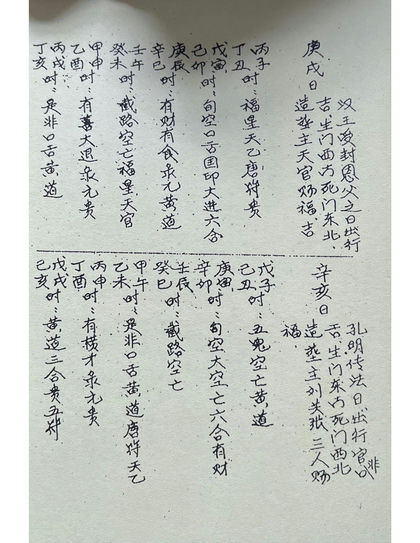 庚戌日
汉王受封恩父之日出行
吉生门西方死门东北
造葬主天官赐福。吉
丙子时：福星天乙唐符贵
丁丑
戊寅时：旬空口舌国印大进六合
己卯
庚辰时：有财有食禄元黄道
辛巳
壬午时：截路空亡福星天官
癸未
甲申时：有喜大退禄元贵
乙酉
丙戌时：是非口舌黄道
丁亥
辛亥日
孔明传法日出行官非口
舌生门东方死门西北
造葬主刘关张三人赐
福
戊子时：五鬼空亡黄道
己丑
庚寅时：旬空大空亡六合有财
辛卯
壬辰时：截路空亡
癸巳
甲午时：是非口舌黄道唐符天乙
乙未
丙申时：有横才禄元贵
丁酉
戊戌时：黄道三合贵五符
己亥